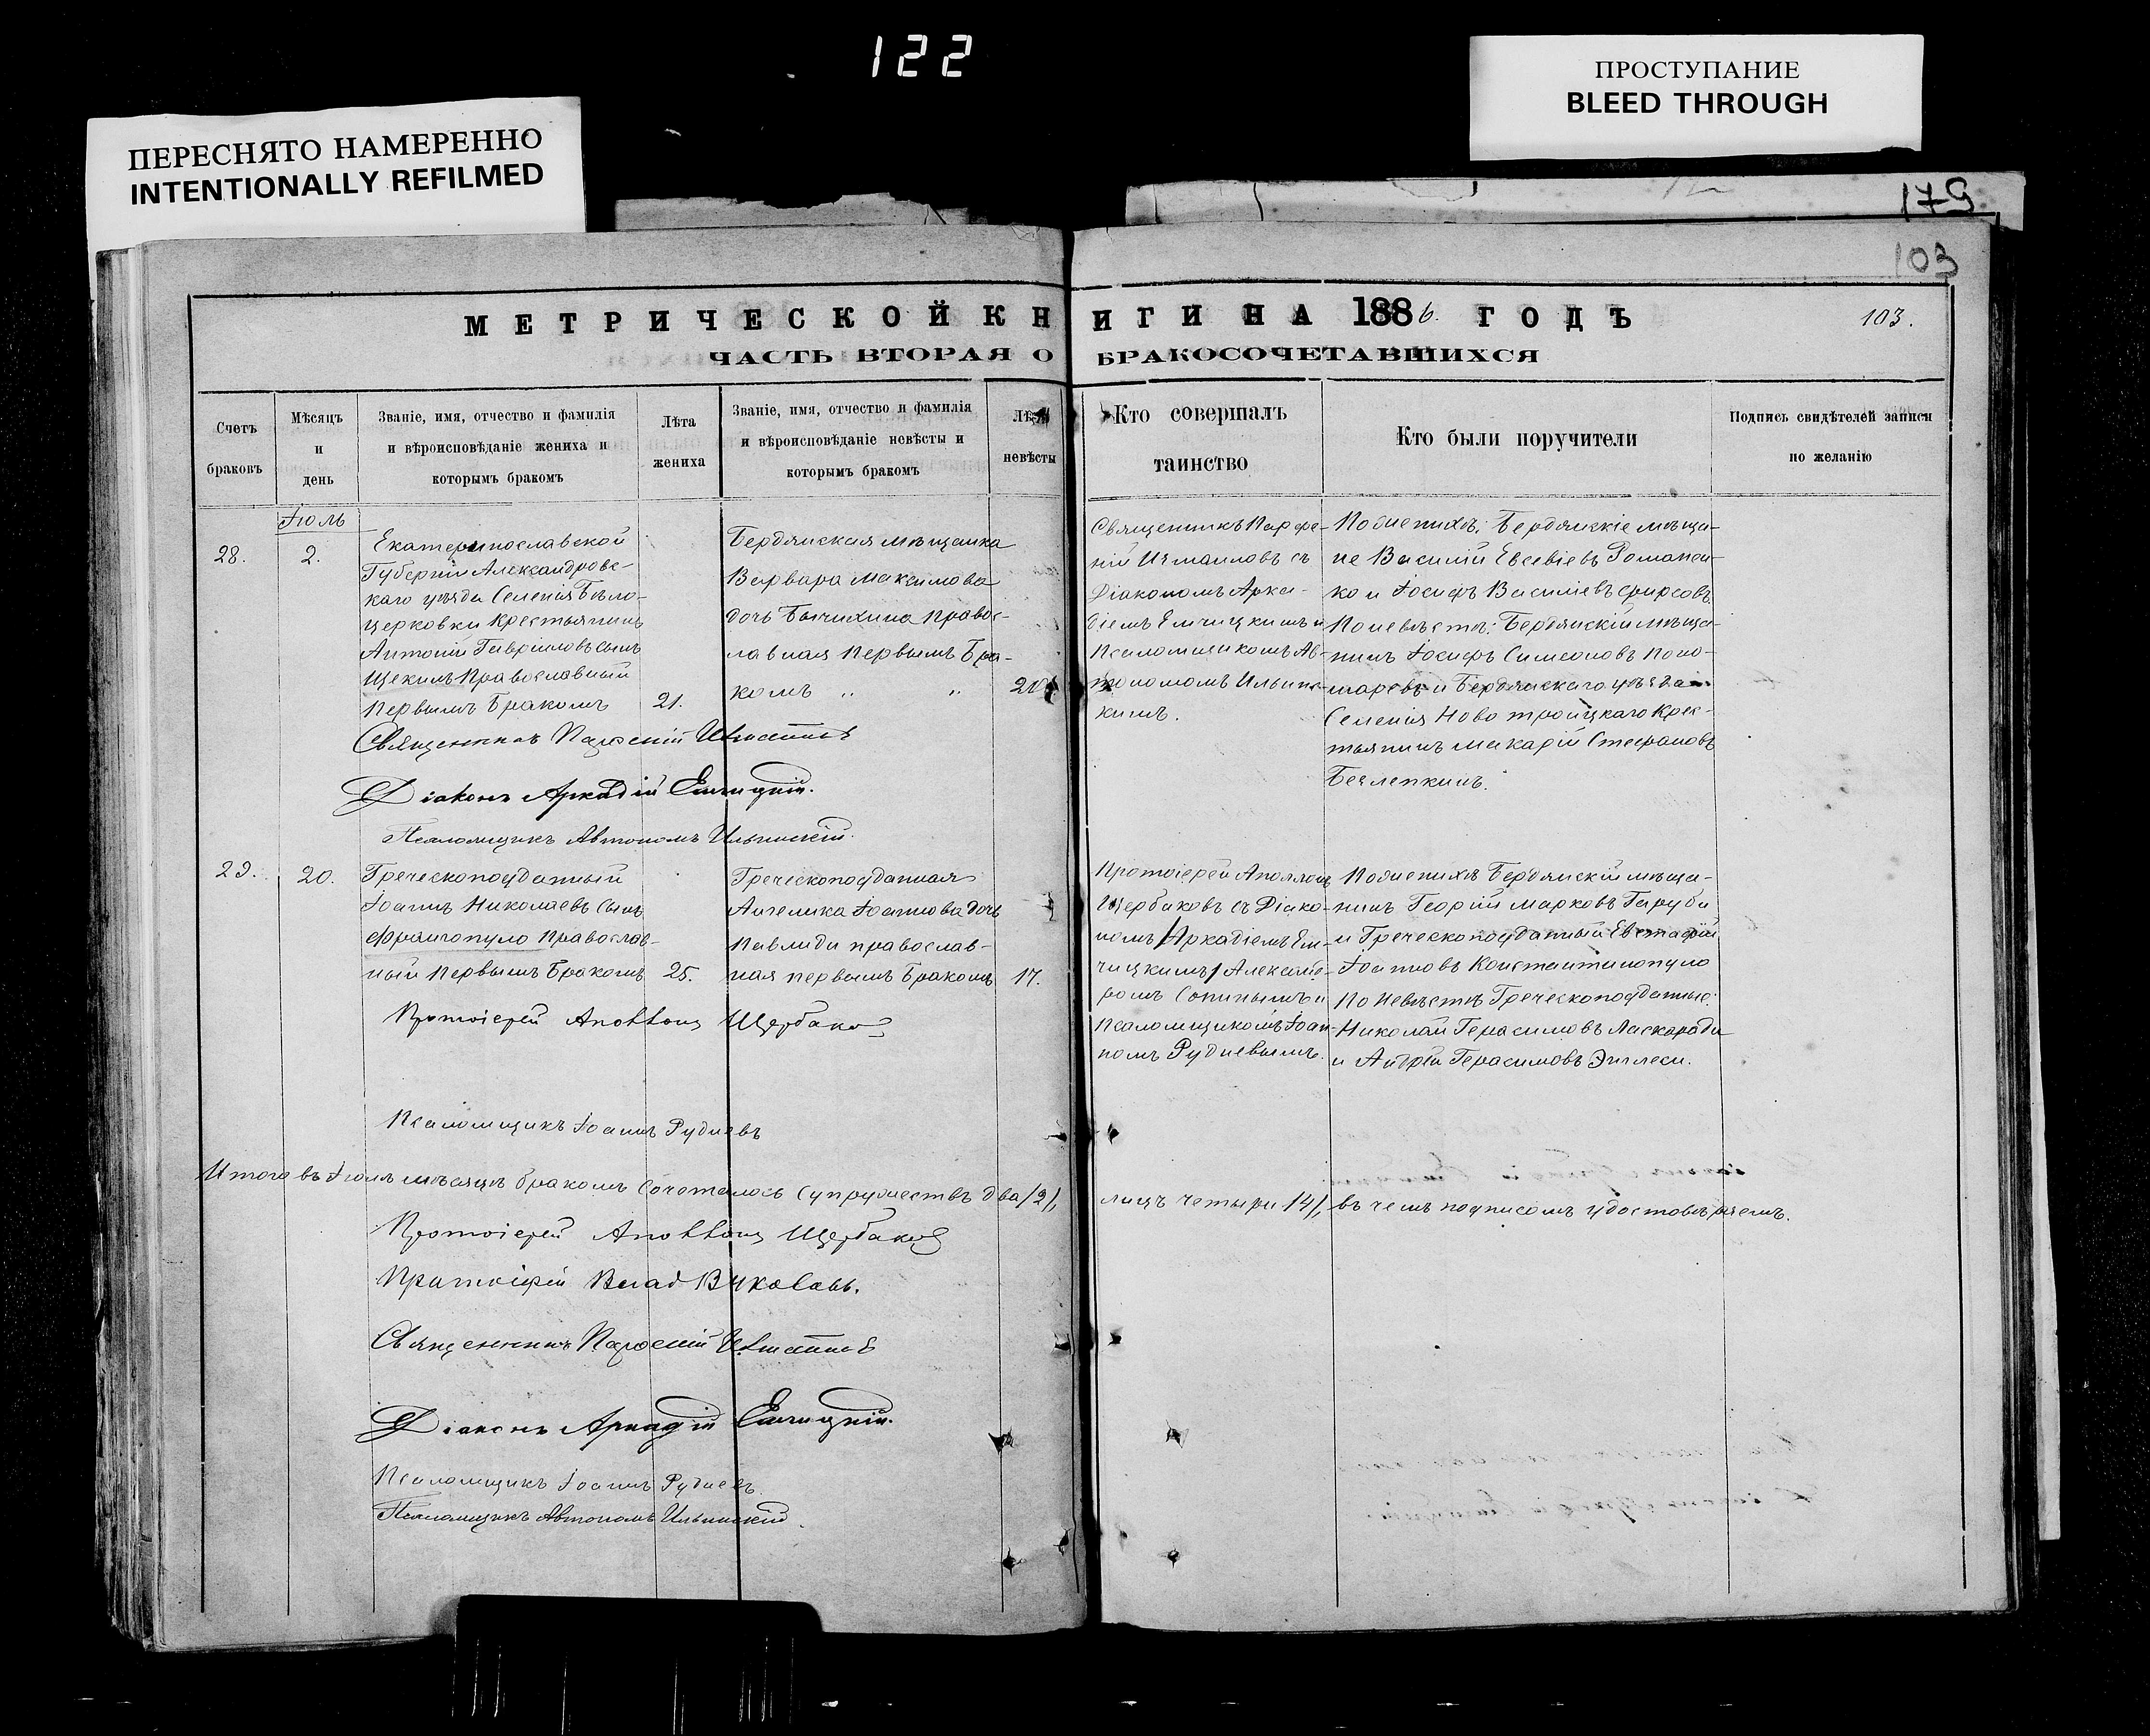 122
ПРОСТУПАНИЕ
BLEED THROUGH
ПЕРЕСНЯТО НАМЕРЕННО
INTENTIONALLY REFILMED
179
103
МЕТРИЧЕСКОЙ КНИГИ НА 1886. ГОДЪ
103.
ЧАСТЬ ВТОРАЯ О БРАКОСОЧЕТАВШИХСЯ
Счетъ
браковъ
Мѣсяцъ
и
день
Званіе, имя, отчество и фамилія
и вѣроисповѣданіе жениха и
которымъ бракомъ
Лѣта
жениха
Званіе, имя, отчество и фамилія
и вѣроисповѣданіе невѣсты и
которымъ бракомъ
Лѣта
невѣсты
Кто совершалъ
таинство
Кто были поручители
Подпись свидѣтелей записи
по желанію
Іюль
28.
2.
Екатеринославской
Губерніи Александровс-
каго уѣзда Селенія Бѣло-
церковки Крестьянинъ
Антоній Гавріиловъ сынъ
Щекинъ Православный
Первымъ Бракомъ
21.
Бердянская мѣщанка
Варвара Максимова
дочь Бычихина Правос-
лавная Первымъ Бра-
комъ „ „
20
Священникъ Парфе-
ній Измаиловъ съ
Діакономъ Арка-
діемъ Емчицкимъ и
Псаломщикомъ Ав-
тономомъ Ильинс-
кимъ.
По женихѣ: Бердянскіе мѣща-
не Василій Евсевіевъ Романен-
ко и Іосифъ Василіевъ Фирсовъ.
По невѣстѣ: Бердянскій мѣща-
нинъ Іосифъ Симеоновъ Поно-
маревъ и Бердянскаго уѣзда
Селенія Новотроицкаго Крес-
тьянинъ Макарій Стефановъ
Безлепкинъ.
Священникъ Парфеній Измаиловъ
Діаконъ Аркадій Емчицкій.
Псаломщикъ Автономъ Ильинскій.
29.
20.
Греческоподданный
Іоаннъ Николаевъ Сынъ
Франгопуло Православ-
ный Первымъ Бракомъ
25.
Греческоподданная
Ангелика Іоаннова дочь
Павлиди православ-
ная первымъ Бракомъ
17.
Протоіерей Аполлонъ
Щербаковъ съ Діако-
номъ /Аркадіемъ Ем-
чицкимъ/ Александ-
ромъ Сопинымъ и
Псаломщикомъ Іоан-
номъ Рудневымъ.
По женихѣ Бердянскій мѣща-
нинъ Георгій Марковъ Гаруби
и Греческоподданный Евстафій
Іоанновъ Константинопуло
По Невѣстѣ Греческоподданные:
Николай Герасимовъ Ласкаради
и Андрей Герасимовъ
Протоіерей Аполлонъ Щербаковъ
Псаломщикъ Іоаннъ Рудневъ
Итого въ Іюлѣ мѣсяцѣ бракомъ сочеталось супружествъ два /2/, лицъ четыри /4/, въ чемъ подписомъ удостовѣряемъ.
Протоіерей Аполлонъ Щербаковъ
Протоіерей
Священникъ Парфеній Измаиловъ
Діаконъ Аркадій Емчицкій.
Псаломщикъ Іоаннъ Рудневъ.
Псаломщикъ Автономъ Ильинскій.